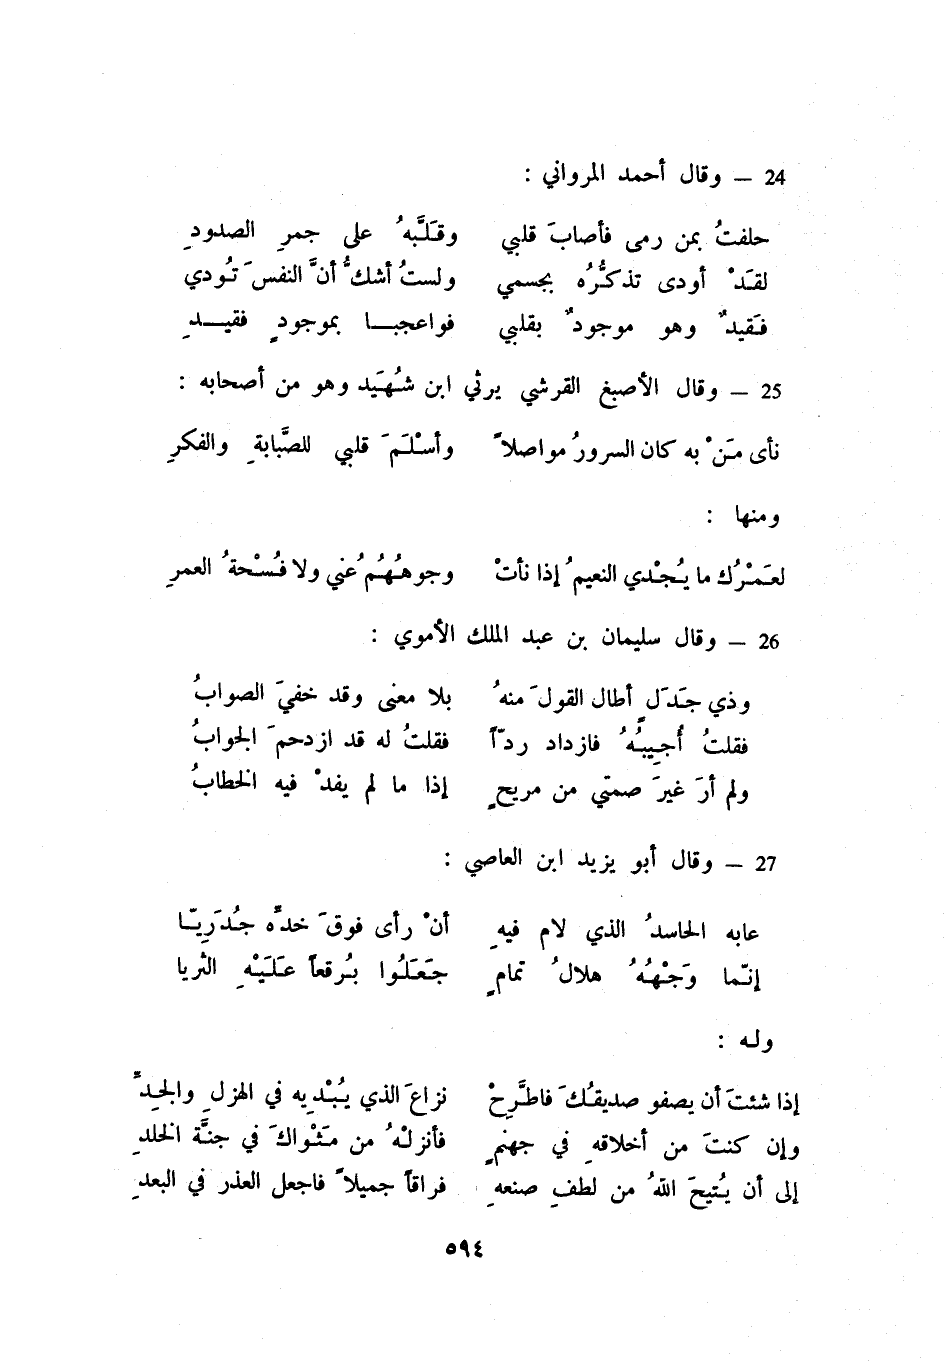 24 – وقال أحمد المرواني :
حلفتُ بمن رمى فأصابَ قلبي وقَلَّبهُ على جمرِ الصدودِ
لقَدْ أودى تذكّرُه بجسمي ولستُ أشكُّ أنَّ النفسَ تُودي
فَقيدٌ وهو موجودٌ بقلبي فواعجبا بموجودٍ فقيدِ
25 – وقال الأصبغ القرشي يرثي ابن شُهَيد وهو من أصحابه :
نأى مَنْ به كان السرورُ مواصلاً وأسْلَمَ قلبي للصَّبابةِ والفكرِ
ومنها :
لعَمْرُك ما يُجْدي النعيمُ إذا نأتْ وجوهُهُمُ عني ولا فُسْحةُ العمرِ
26 – وقال سليمان بن عبد الملك الأموي :
وذي جَدَلٍ أطال القولَ منهُ بلا معنى وقد خفيَ الصوابُ
فقلتُ أُجِيبُهُ فازداد ردّاً فقلتُ له قد ازدحمَ الجوابُ
ولم أرَ غيرَ صمتي من مريحٍ إذا ما لم يفدْ فيه الخطابُ
27 – وقال أبو يزيد ابن العاصي :
عابه الحاسدُ الذي لام فيهِ أنْ رأى فوقَ خدّه جُدَرِيّا
إنّما وَجْهُهُ هلالُ تمامٍ جَعَلُوا بُرقعاً عَلَيْهِ الثريا
وله :
إذا شئتَ أن يصفو صديقُكَ فاطَّرِحْ نزاعَ الذي يُبْدِيه في الهزلِ والجِدِّ
وإن كنتَ من أخلاقهِ في جهنمٍ فأنزلْهُ من مَثْواكَ في جنَّة الخلدِ
إلى أن يُتيحَ اللهُ من لطفِ صنعهِ فراقاً جميلاً فاجعل العذر في البعدِ
٥٩٤